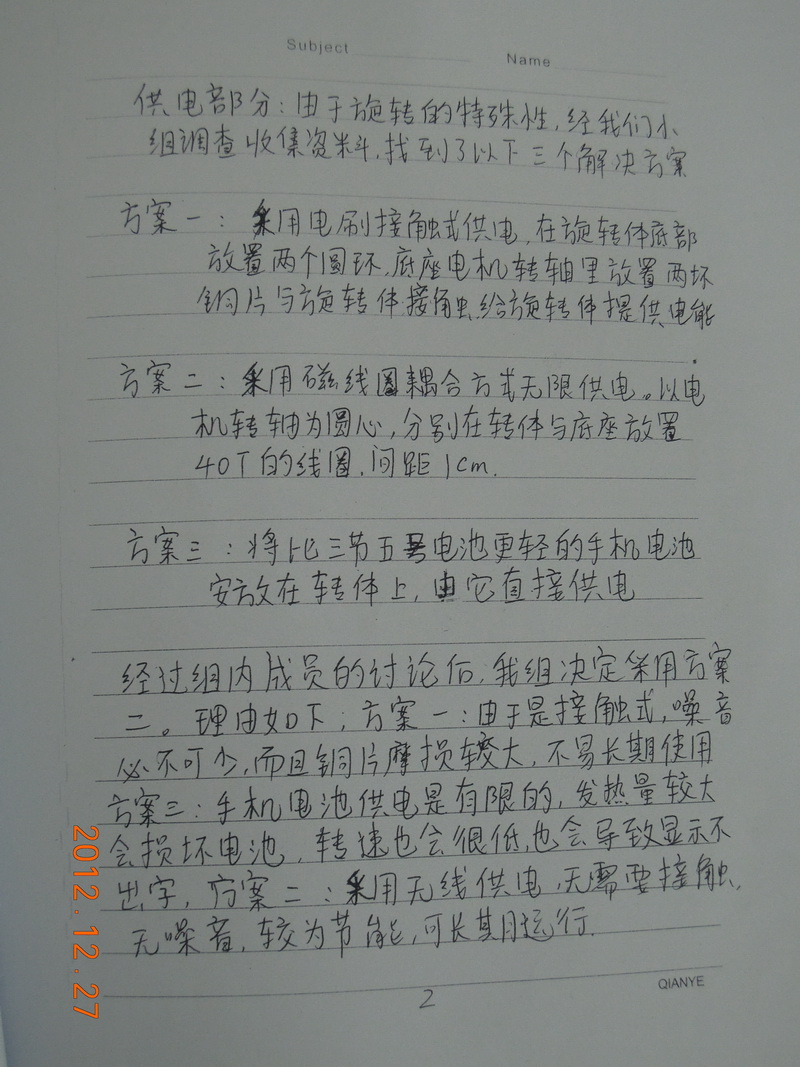 Subject
Name
供电部分：由于旋转的特殊性，经我们小
组调查收集资料，找到了以下三个解决方案
方案一：采用电刷接触式供电，在旋转体底部
放置两个圆环，底座电机转轴里放置两坏
铜片与旋转体接触，给旋转体提供电能
方案二：采用磁线圈耦合方式无限供电。以电
机转轴为圆心，分别在转体与底座放置
40T的线圈，间距1cm.
方案三：将比三节五号电池更轻的手机电池
安放在转体上，由它直接供电
经过组内成员的讨论后，我组决定采用方案
二。理由如下；方案一：由于是接触式，噪音
必不可少，而且铜片摩损较大，不易长期使用
方案三：手机电池供电是有限的，发热量较大
会损坏电池，转速也会很低，也会导致显示不
出字，方案二：采用无线供电，无需要接触，
无噪音，较为节能，可长期运行.
2
QIANYE
2012.12.27